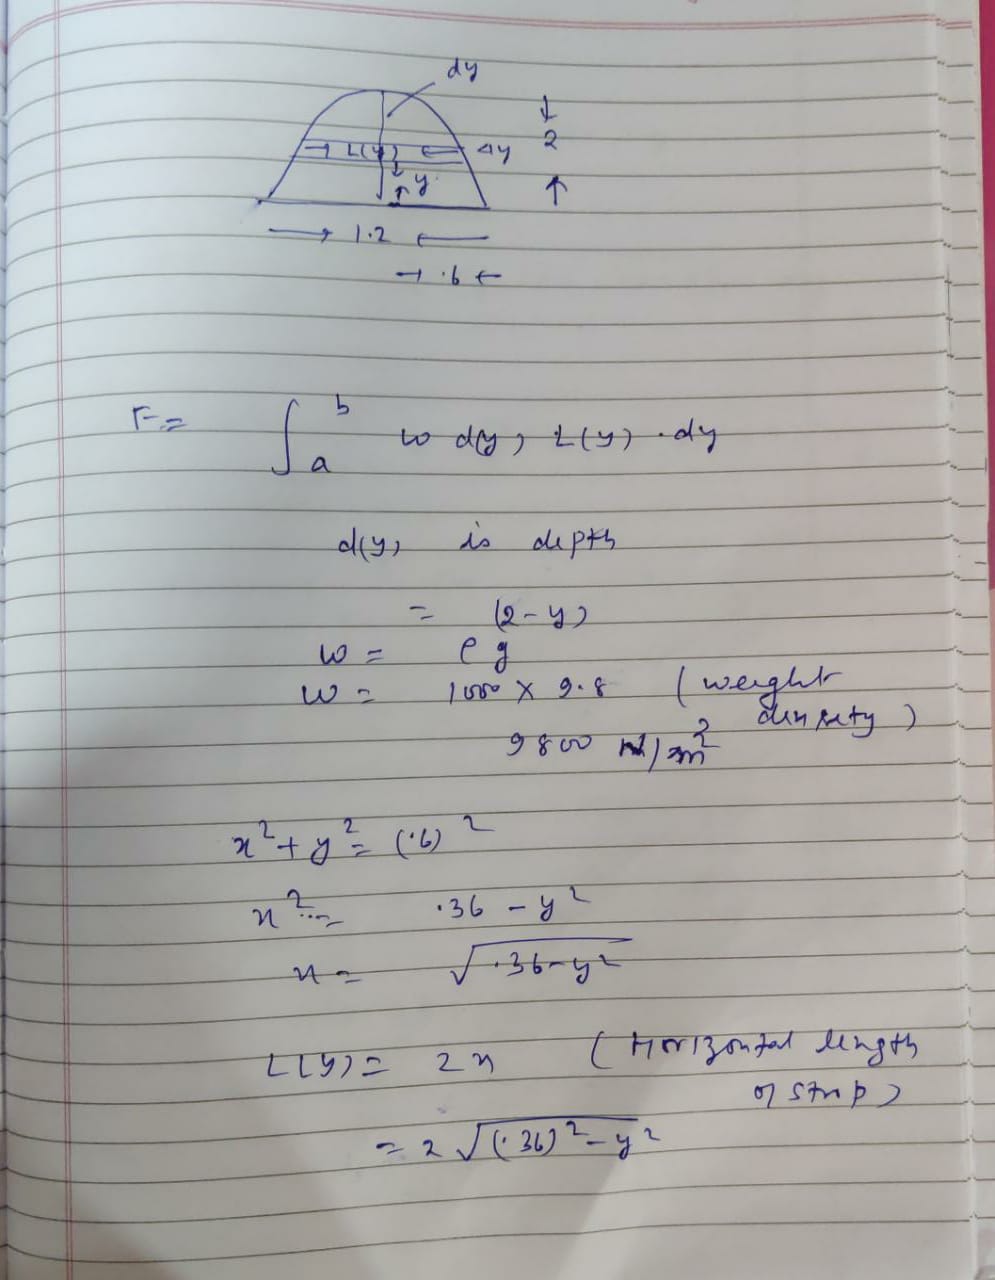 dy
→ L(y) ← Δy
↓
2
↑
y
→ 1.2 ←
→ .6 ←
F = ∫ₐᵇ w d(y) L(y) . dy
d(y) is depth
= (2-y)
w = ρg
w = 1000 × 9.8 (weight
density)
9800 N/m³
x² + y² = (.6)²
x² = .36 - y²
x = √.36-y²
L(y) = 2x (Horizontal length
of strip)
= 2 √(.36)² - y²